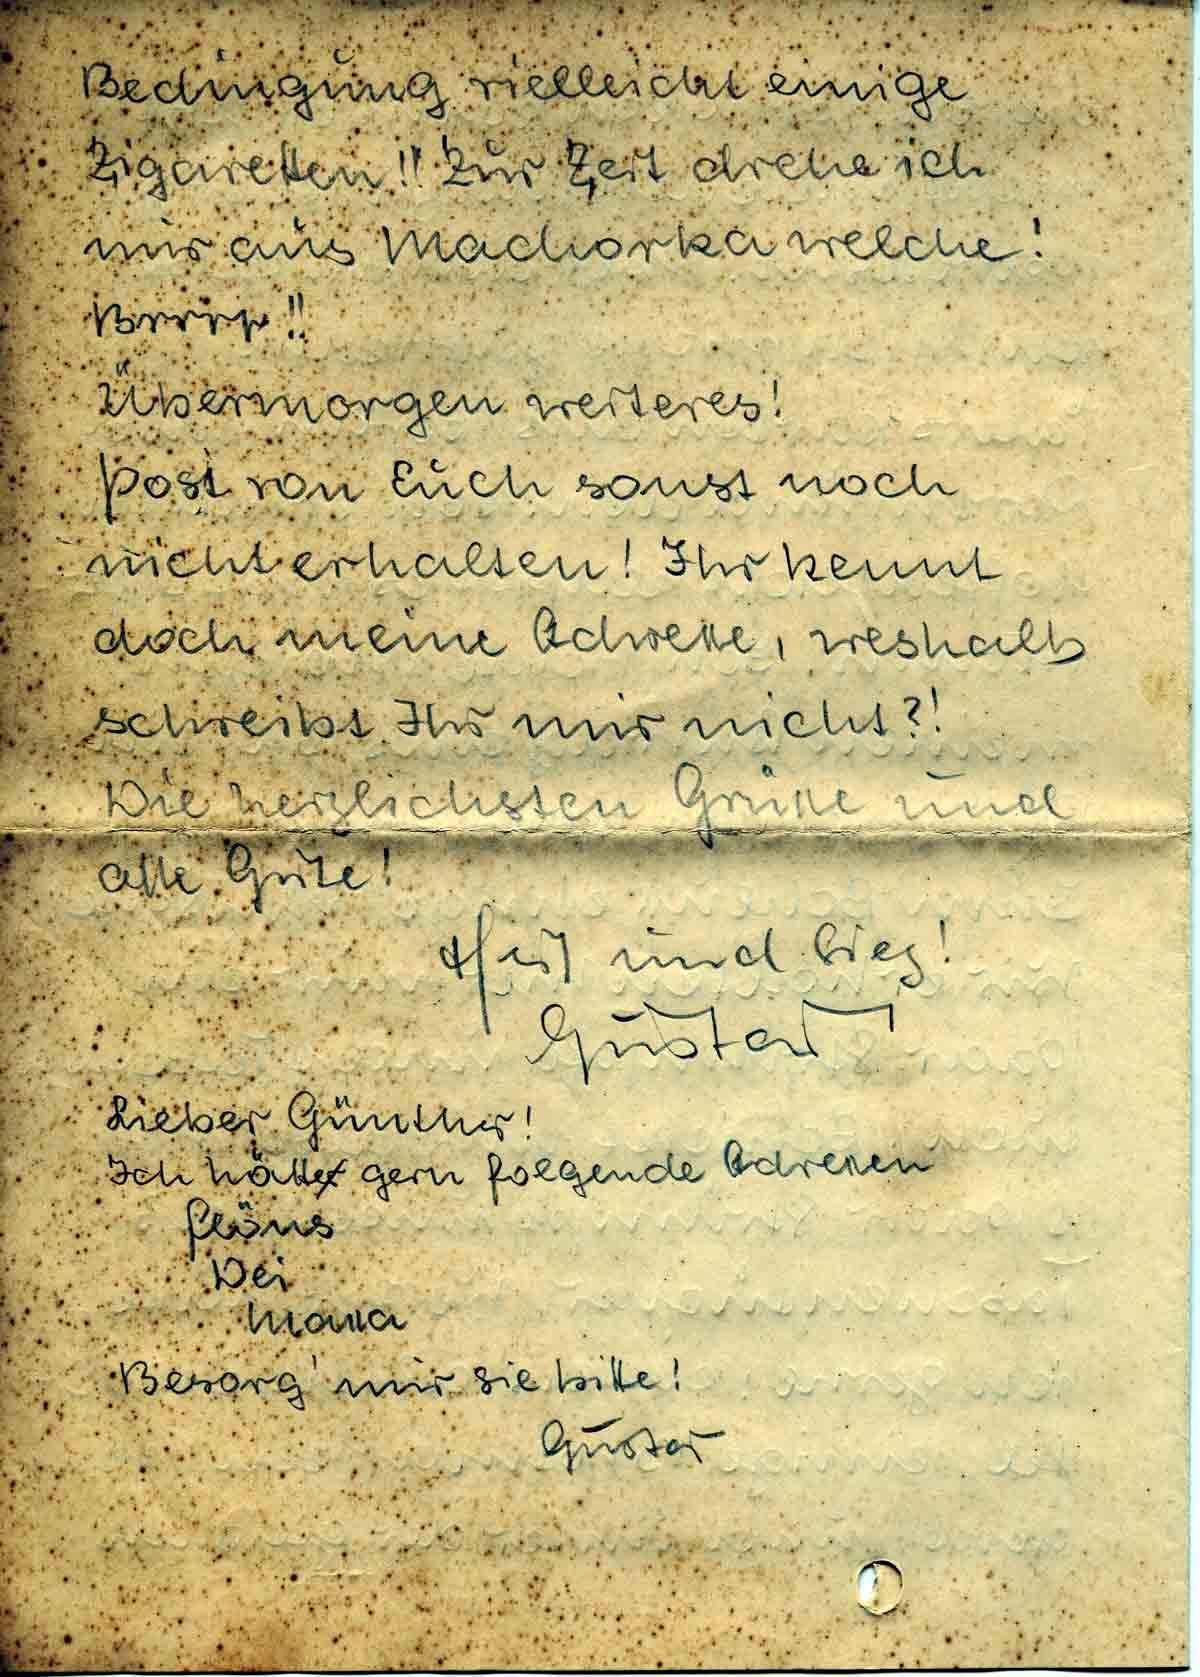 Bedingung vielleicht einige
Zigaretten!! Zur Zeit drehe ich
mir aus Machorka welche!
Brrrr!!
Übermorgen weiteres!
Post von Euch sonst noch
nicht erhalten! Ihr kennt
doch meine Adresse, weshalb
schreibt Ihr mir nicht?!
Die herzlichsten Grüsse und
alle Gute!
Heil und Sieg!
Gustav
Lieber Günther!
Ich hätte gern folgende Adressen
Clöns
Dei
Massa
Besorg' mir sie bitte!
Gustav